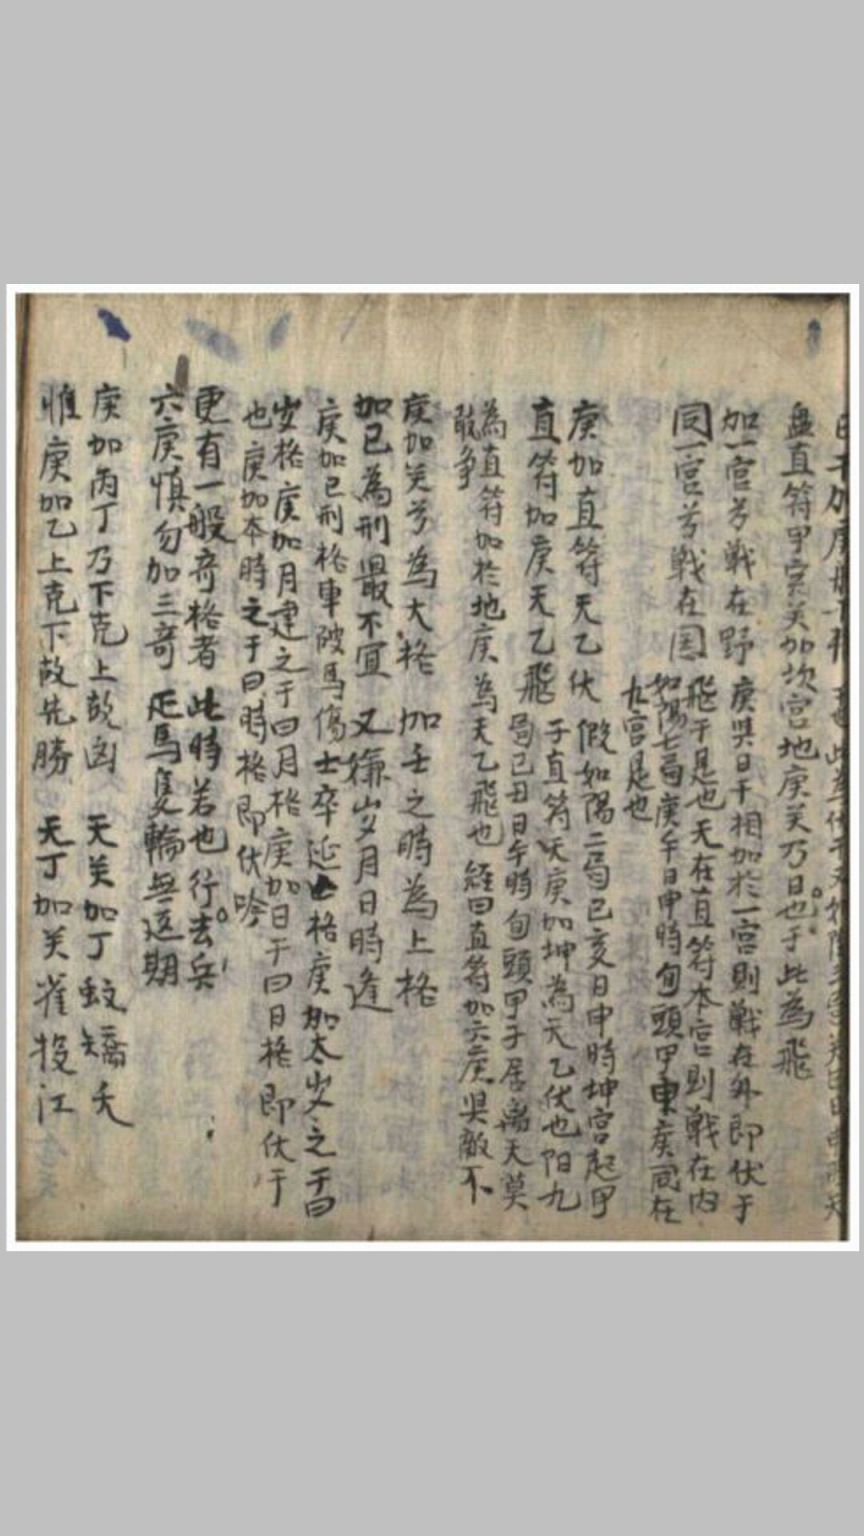 盘直符甲寅关加坎宫地庚关乃日也于此為飛
加一宫兮戰在野 庚與日干相加於一宫則戰在外即伏于
同一宫兮戰在国 飛于是也天在直符本宫則戰在内
如陽七局庚午日申時旬頭甲申庚同在
九宫是也
庚加直符天乙伏 假如陽二局己亥日申時坤宫起甲
直符加庚天乙飛 子直符天庚加坤為天乙伏也阳九
局己丑日午時旬頭甲子居离天莫
為直符加於地庚為天乙飛也 經曰直符加六庚與敵不
敢争
庚加关兮為大格 加壬之時為上格
加已為刑最不宜 又嫌岁月日時逢
庚加已刑格車破馬傷士卒 格庚加太岁之干曰
岁格庚加月建之干曰月格庚加日干曰日格即伏干
也庚加本時之干曰時格即伏吟
更有一般奇格者 此時若也行去兵
六庚慎勿加三奇 疋馬隻輪無返期
庚加丙丁乃下克上故凶 天关加丁蛟矯天
惟庚加乙上克下故先勝 天丁加关雀投江